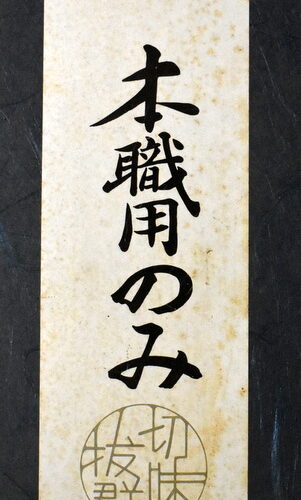 本職用のみ
切味
抜群